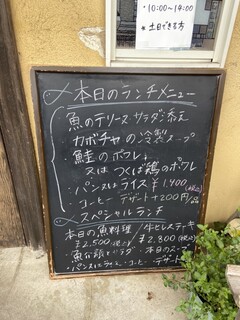 ・10:00〜14:00
*土日できる方
本日のランチメニュー
魚のテリーヌ サラダ添え
カボチャの冷製スープ
・鮭のポワレ
又は つくば鶏のポワレ
・パン又はライス ¥1,400(税込)
・コーヒー デザート +200円/品
スペシャルランチ
本日の魚料理/牛ヒレステーキ
¥2,500(税込) ¥2,800(税込)
・パン又はライス・コーヒー・デザート